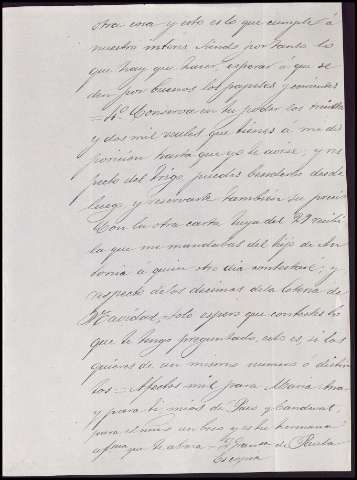 otra cosa y esto es lo que cumple á
nuestro interes siendo por tanto lo
que hay que hacer, esperar á que se
den por buenos los papeles y
= 4º Conserva en tu poder los
y dos mil reales que tienes á mi dis
posicion hasta que yo te avise; y res
pecto del trigo puedes venderlo desde
luego y reservarte tambien su precio
Con la otra carta tuya del 29 recibí
la que me mandabas del hijo de An
tonia á quien otro dia contestaré; y
respecto de los decimos de la loteria de
Navidad, solo espero que contestes lo
que te tengo preguntado, esto es, si los
quieres de un mismo numero ó distin
tos = Afectos mil para Maria Ana
y para ti mios de Paco y
para el mio un beso y este hermana
que te abraza = Franca de Paula